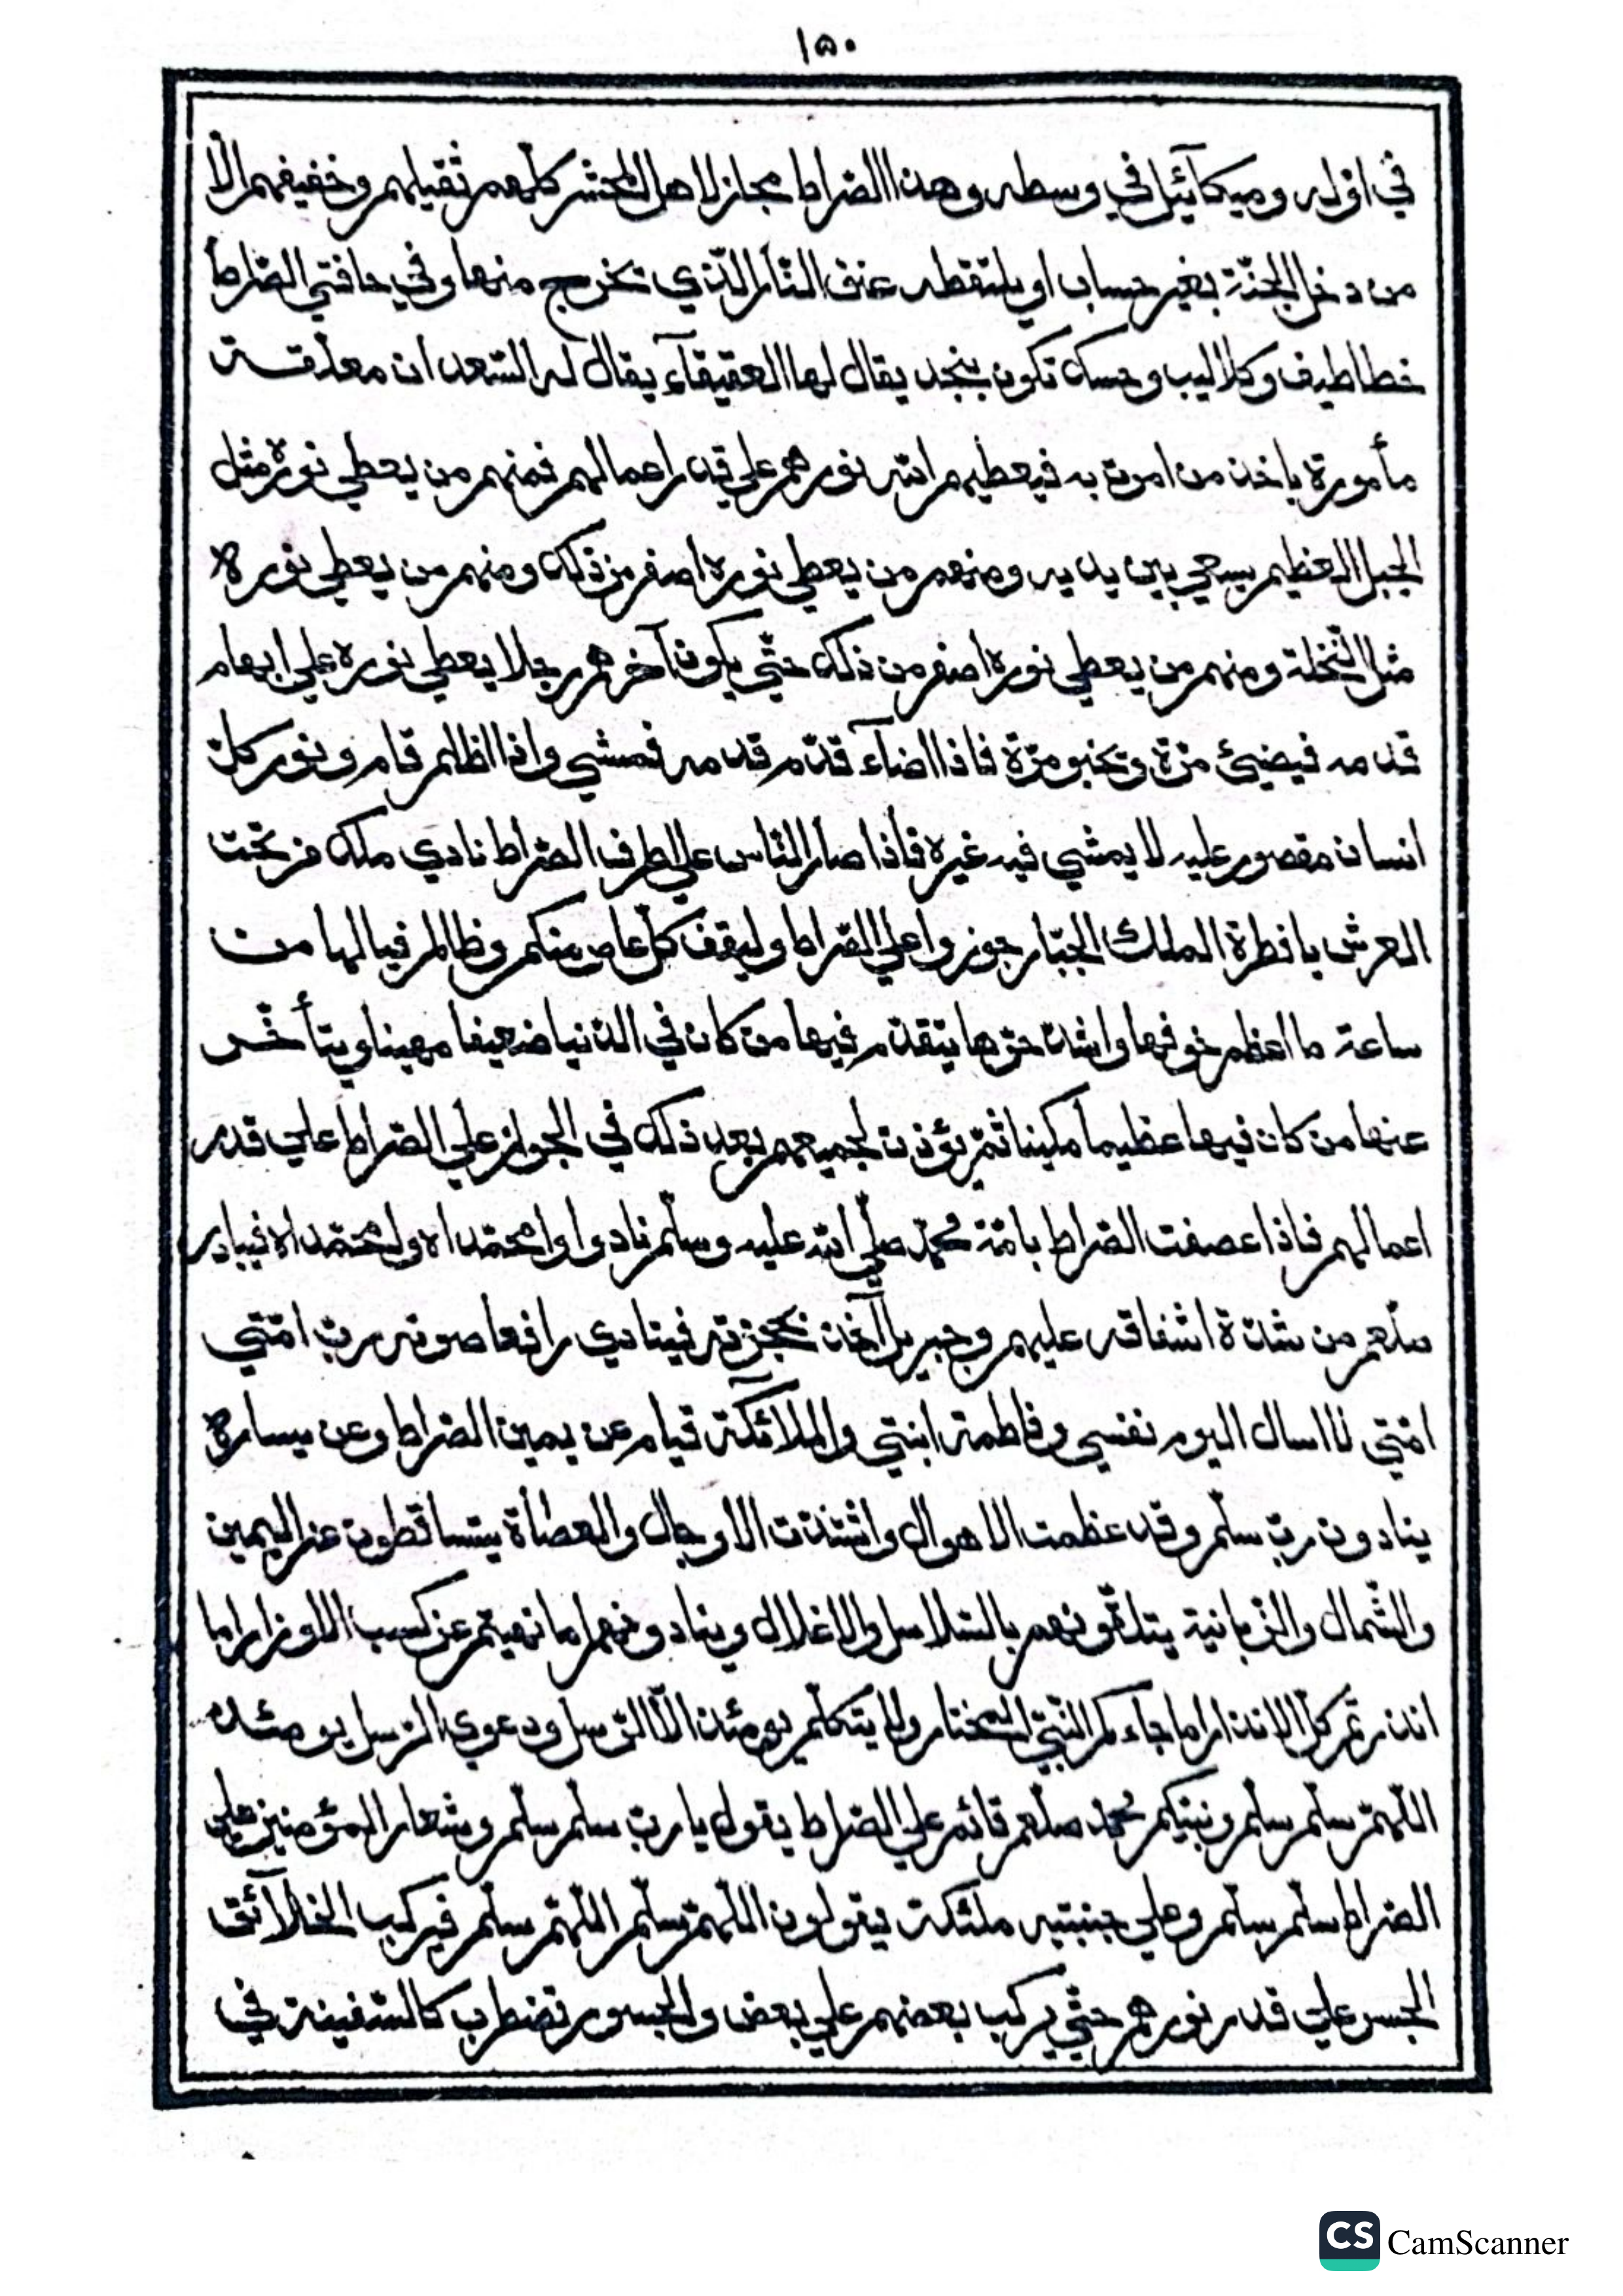 ١٥٠
في اوله وميكآئيل في وسطه وهذا الصراط مجاز لاهل المحشر كلّهم ثقيلهم وخفيفهم الّا
من دخل الجنّة بغير حساب او يلتقطه عنق النّار الّذي تخرج منها وفي حافتي الصّراط
خطاطيف وكلاليب وحسك تكون بنجد يقال لها العقيقآء يقال له السّعدان معلّقة
مأمورة ياخذ من امرت به فيعطيهم الله نورهم علي قدر اعمالهم فمنهم من يعطي نوره مثل
الجبل العظيم يسعي بين يديه ومنهم من يعطي نوره اصغر من ذلك ومنهم من يعطي نوره
مثل النّخلة ومنهم من يعطي نوره اصغر من ذلك حتّي يكون آخرهم رجلا يعطي نوره علي ابهام
قدمه فيضيئ مرّة ويخبو مرّة فاذا اضآء قدّم قدمه فمشي واذا اظلم قام ونور كلّ
انسان مقصور عليه لا يمشي فيه غيره فأذا صار النّاس علي طرف الصّراط نادي ملك من تحت
العرش يا فطرة الملك الجبّار جوزوا علي الصّراط وليقف كلّ عاص منكم وظالم فيالها من
ساعة ما اعظم خوفها واشدّ حرّها يتقدّم فيها من كان في الدّنيا ضعيفا مهينا ويتأخّر
عنها من كان فيها عظيما مكينا ثمّ يؤذن لجميعهم بعد ذلك في الجواز علي الصّراط علي قدر
اعمالهم فاذا عصفت الصّراط بامّة محمّد صلّي الله عليه وسلّم نادوا وامحمّداه وامحمّداه فيبادر
صلعم من شدّة اشفاقه عليهم وجبريل آخذ بحجزته فينادي رافعا صوته ربّ امّتي
امّتي لا اسال اليوم نفسي وفاطمة ابنتي والملآئكة قيام عن يمين الصّراط وعن يساره
ينادون ربّ سلّم وقد عظمت الاهوال واشتدّت الاوجال والعصاة يتساقطون عن اليمين
والشّمال والزّبانية يتلقّونهم بالسّلاسل والاغلال وينادونهم اما نهيتم عن كسب الاوزار اما
انذرتم كلّ الانذار اما جاءكم النّبيّ المختار ولا يتكلّم يومئذ الّا الرّسل ودعوي الرّسل يومئذ
اللّهمّ سلّم سلّم ونبيّكم محمّد صلعم قائم علي الصّراط يقول يا ربّ سلّم سلّم وشعار المؤمنين علي
الصّراط سلّم سلّم وعلي جنبتيه ملئكة يقولون اللّهمّ سلّم اللّهمّ سلّم فيركب الخلآئق
الجسر علي قدر نورهم حتّي يركب بعضهم علي بعض والجسور تضطرب كالسّفينة في
CS CamScanner